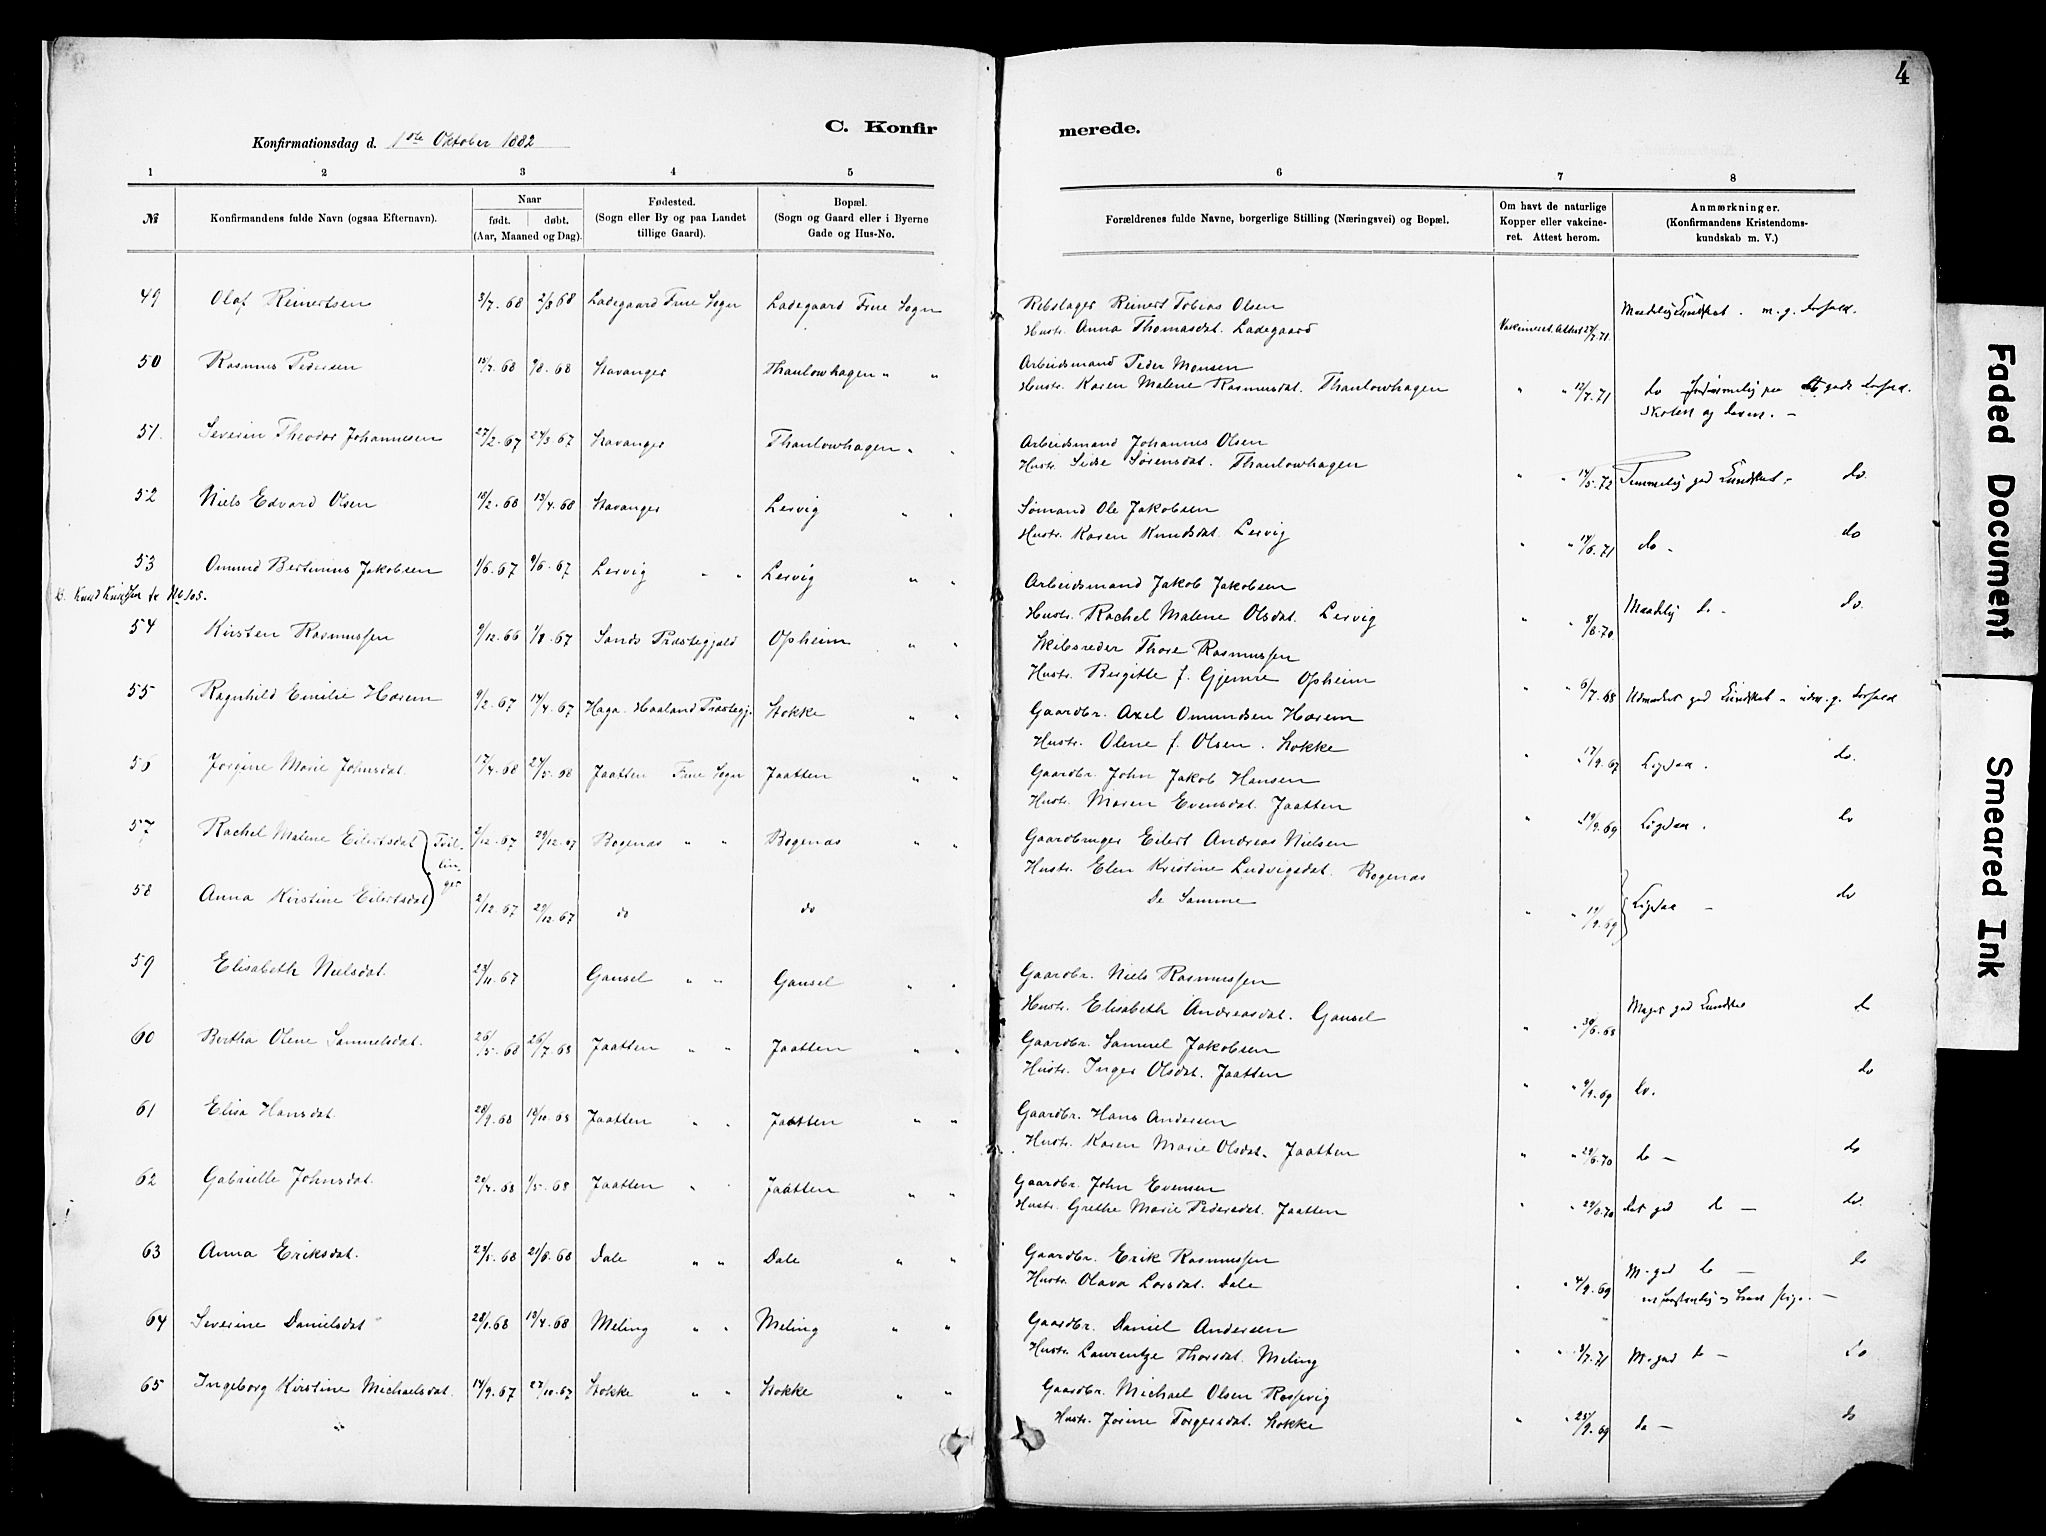 4
C. Konfirmerede.
Konfirmationsdag d. 1ste Oktober 1882
1 2 3 4 5 6 7 8
№ Konfirmandens fulde Navn (ogsaa Efternavn). Naar født. døbt. (Aar, Maaned og Dag). Fødested. (Sogn eller By og paa Landet tillige Gaard). Bopæl. (Sogn og Gaard eller i Byerne Gade og Hus-No. Forældrenes fulde Navne, borgerlige Stilling (Næringsvei) og Bopæl. Om havt de naturlige Kopper eller vakcineret. Attest herom. Anmærkninger. (Konfirmandens Kristendomskundskab m. V.)
49 Olaf Reinertsen 3/7. 68 2/8 68 Ladegaard Frue Sogn Ladegaard Frue Sogn Rebslager Reinert Tobias Olsen
Hustr. Anna Thomasdat. Ladegaard Vakcineret. Attest 27/7. 71
50 Rasmus Pedersen 15/7. 68 9/8. 68 Stavanger Thaulowhagen " " Arbeidsmand Peder Monsen
Hustr. Karen Malene Rasmusdat. Thaulowhagen " " 12/7. 71 do
Skolen og
51. Severin Theodor Johannesen 27/2. 67 24/3. 67 Stavanger Thaulowhagen " " Arbeidsmand Johannes Olsen
Hustr. Sidse Sørensdat. Thaulowhagen " " 14/5. 72 Temmelig god Kundskab. do.
52 Niels Edvard Olsen 18/2. 68 13/4. 68 Stavanger Lervig " " Sømand Ole Jakobsen
Hustr. Karen Knudsdat. Lervig " " 14/6. 71 do. do
53 Omund Bertinius Jakobsen 1/6. 67 9/6. 67 Lervig " " Lervig " " Arbeidsmand Jakob Jakobsen
Hustr. Rachel Malene Olsdat. Lervig " " 8/6. 70 Maadelig do - do.
54 Kirsten Rasmussen 9/12. 66 1/8. 67 Sands Præstegjæld Opheim " " Skibsreder Thore Rasmussen
Hustr. Birgitte f. Gjemre Opheim " " 6/7. 68
55 Ragnhild Emilie Hærem 9/2. 67 14/4. 67 Haga. Haaland Præstegj. Stokke " " Gaardbr. Axel Omundsen Hærem
Hustr. Olene f. Olsen. Stokke " 17/9. 67 Ligesaa. do.
56 Jorgine Marie Johnsdat. 17/4. 68 24/5. 68 Jaatten Frue Sogn Jaatten " " Gaardbr. John Jakob Hansen
Hustr. Maren Evensdat. Jaatten " " 19/9. 69 Ligesaa. do
57 Rachel Malene Eilertsdat. Tvillinger 2/12. 67 29/12. 67 Bogenæs " " Bogenæs " " Gaardbruger Eilert Andreas Nielsen
Hustr. Elen Kristine Ludvigsdat. Bogenæs
58 Anna Kirstine Eilertsdat. 2/12. 67 29/12. 67 do do De Samme " " 19/9. 69 Ligesaa - do
59 Elisabeth Nielsdat. 23/11. 67 Gausel " " Gausel " " Gaardbr. Niels Rasmussen
Hustr. Elisabeth Andreasdat. Gausel " " 30/6. 68 Meget god Kundskab do
60 Bertha Olene Samuelsdat. 26/5. 68 26/7. 68 Jaatten " " Jaatten " " Gaardbr. Samuel Jakobsen
Hustr. Inger Olsdat. Jaatten " " 9/9. 69 do. do
61 Elisa Hansdat. 28/9. 68 18/10. 68 Jaatten " " Jaatten " " Gaardbr. Hans Andersen
Hustr. Karen Marie Olsdat. Jaatten " " 29/6. 70 do - do
62 Gabrielle Johnsdat. 20/4. 68 1/5. 68 Jaatten " " Jaatten " " Gaardbr. John Evensen
Hustr. Grethe Marie Pedersdat. Jaatten " " 29/6. 70 god do - do.
63 Anna Eriksdat. 23/5. 68 21/6. 68 Dale " " Dale " " Gaardbr. Erik Rasmussen
Hustr. Olava Larsdat. Dale " " 4/9. 69 M. god do - do
64 Severine Danielsdat. 28/1. 68 13/4. 68 Meling " " Meling " " Gaardbr. Daniel Andersen
Hustr. Laurentze Thorsdat. Meling " " 9/7. 71 M. god do - do
65 Ingeborg Kirstine Michaelsdat. 14/9. 67 27/10. 67 Stokke " " Stokke " " Gaardbr. Michael Olsen Rossevig
Hustr. Jorine Torgersdat. Stokke " " 25/9. 69 do - do
Faded Document
Smeared Ink